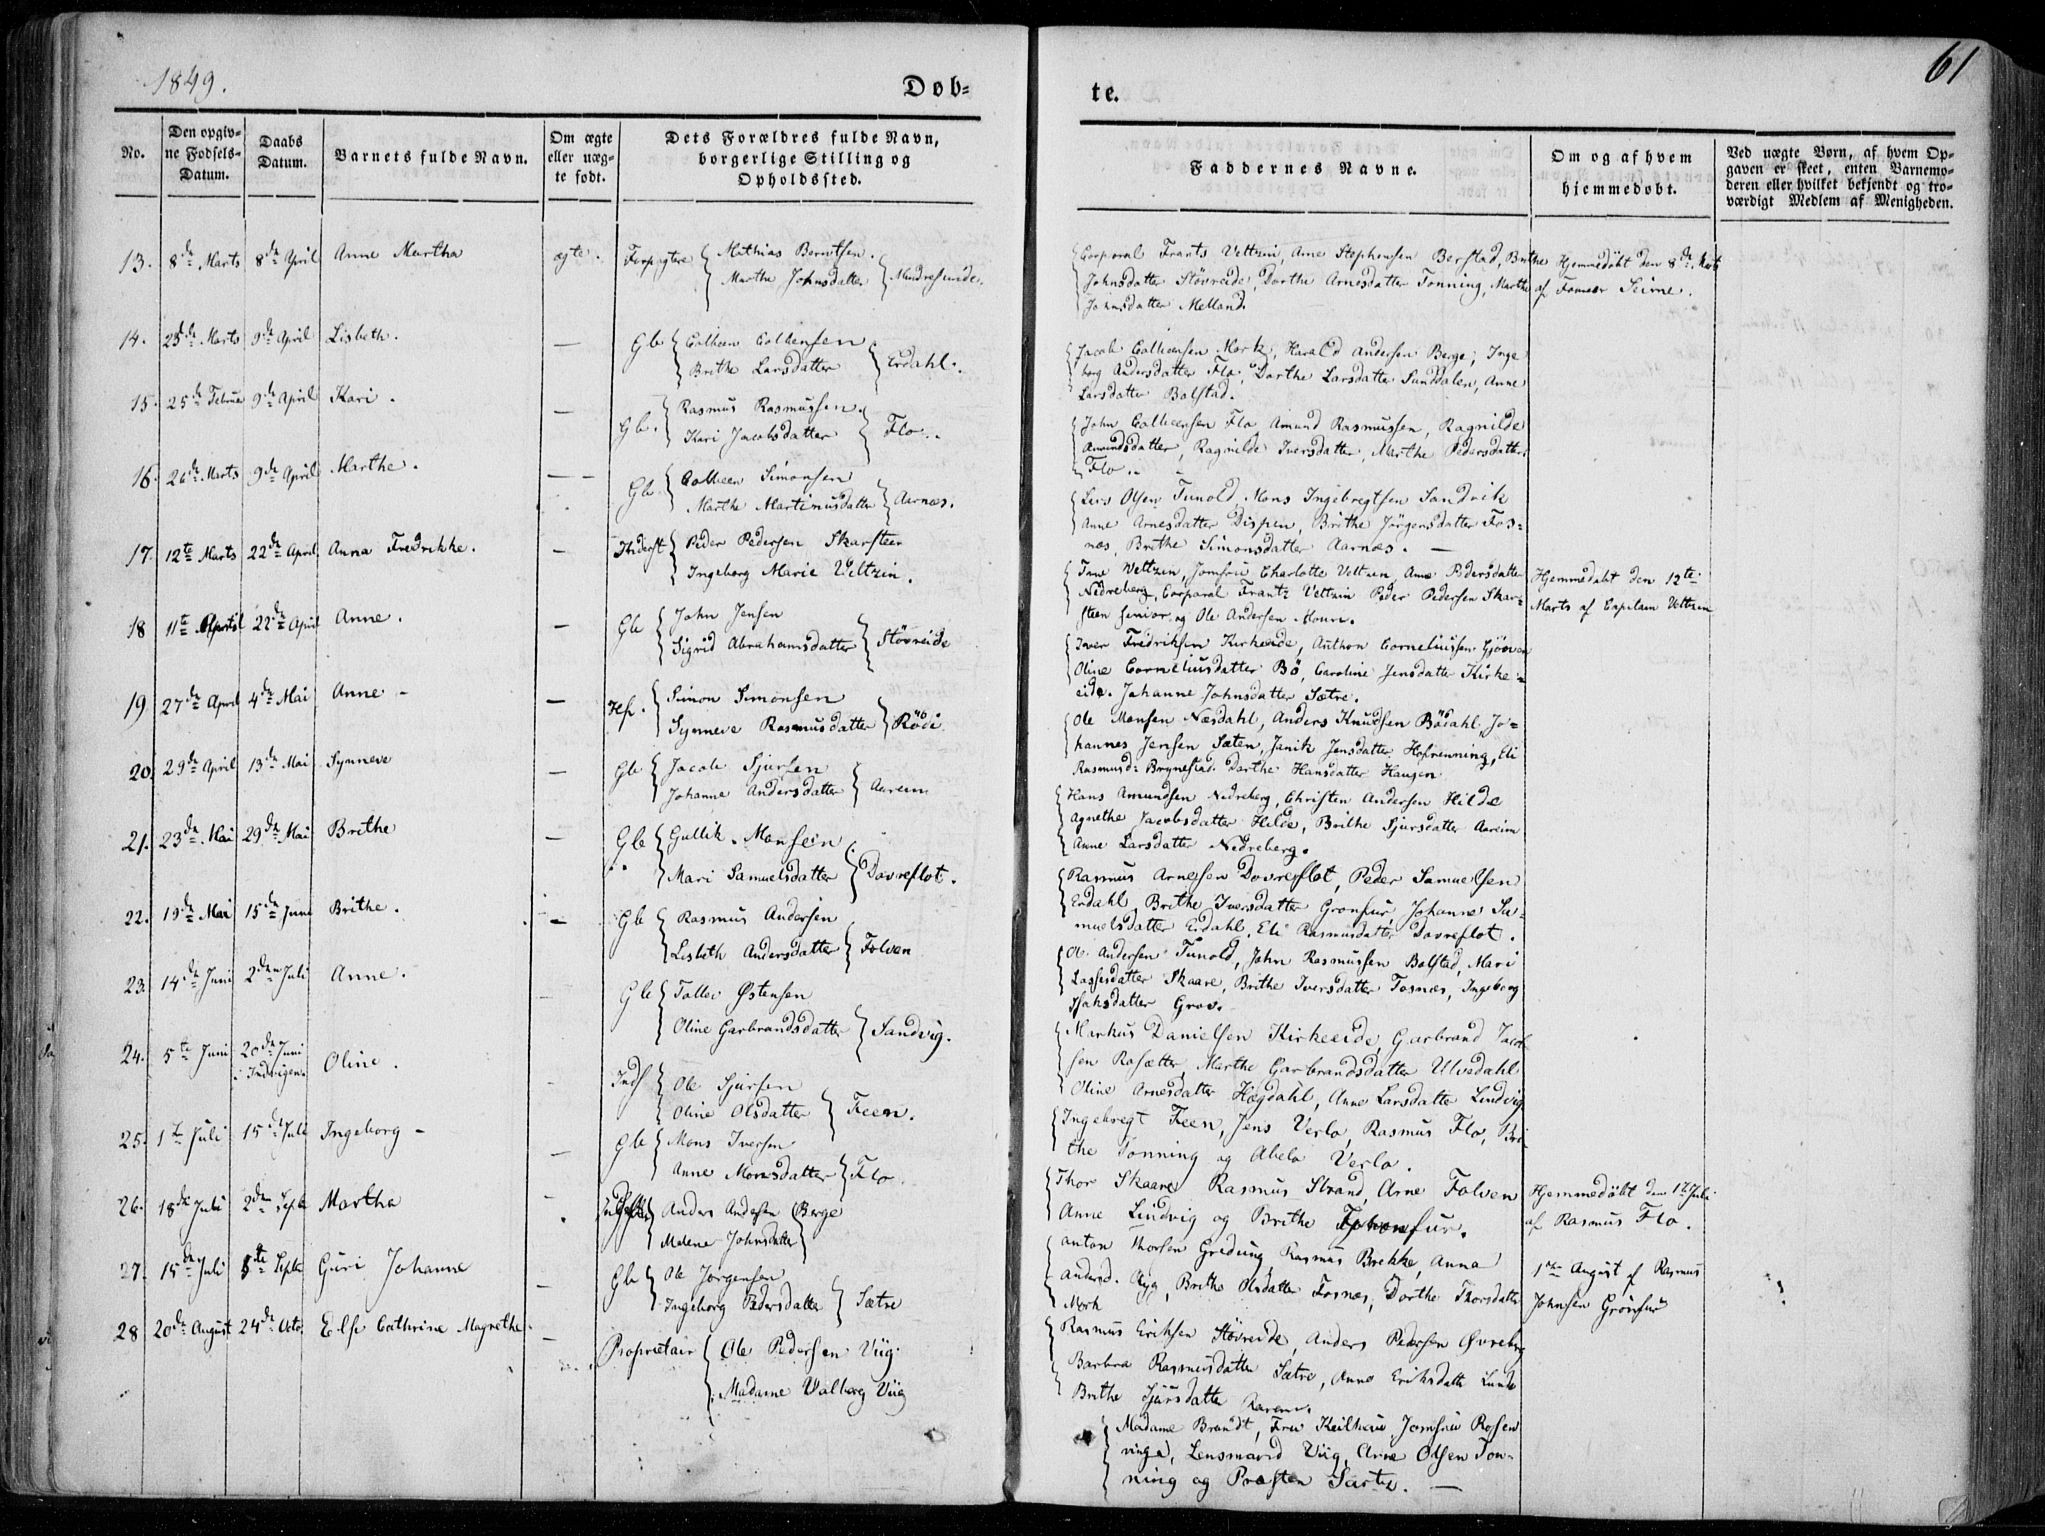 1849.
Døb=
te.
61
No.
Den opgiv=
ne Fødsels=
Datum.
Daabs
Datum.
Barnets fulde Navn.
Om ægte
eller uæg=
te født.
Dets Forældres fulde Navn,
borgerlige Stilling og
Opholdssted.
Faddernes Navne.
Om og af hvem
hjemmedøbt.
Ved uægte Børn, af hvem Op=
gaven er skeet, enten Barnemo=
deren eller hvilket bekjendt og tro=
værdigt Medlem af Menigheden.
13. 8de Marts 8de April Anne Martha ægte. Mathias Berntsen.
Marthe Johnsdatter
Corporal Frants Veltzin, Arne Stephensen Berstad, Brithe
Johnsdatter Stövreide, Dorthe Arnesdatter Tonning, Marthe
Johnsdatter Melland.
Hjemmedöbt den 8de Marts
af Seime.
14. 25de Marts 9de April Lisbeth. — Gb Colbeen Colbensen
Brithe Larsdatter Erdahl.
Jacob Colbensen Mork, Harald Andersen Berge, Inge
borg Andersdatter Flo, Dorthe Larsdatter Sunddalen, Anne
Larsdatter Bolstad.
15. 25de Februar 9de April Kari. — Gb. Rasmus Rasmussen
Kari Jacobsdatter Flo.
John Colbensen Flo, Amund Rasmussen, Ragnilde
Amundsdatter, Ragnilde Iversdatter, Marthe Pedersdatter
Flo.
16. 26de Marts 9de April Marthe. — Gb. Colbeen Simonsen
Marthe Martinusdatter Aarnæs.
Olsen Tunold, Mons Ingebregtsen Sandvik
Anne Arnesdatter Dispen, Brithe Jörgensdatter Fos=
næs, Brithe Simonsdatter Aarnæs. —
17. 12te Marts 22de April Anna Fredrikke. — Inderst Peder Pedersen Skarsteen
Ingeborg Marie Veltzin.
Frue Veltzen, Jomfrü Charlotte Veltzen, Anne Pedersdatter
Nedreberg, Corporal Frantz Veltzin Peder Pedersen Skar=
steen senior og Ole Andersen Moure.
Hjemmedöbt den 12te
Marts af Capitain Veltzin
18 11te April 22de April Anne. — Gb John Jensen
Sigrid Abrahamsdatter Stövreide
Iver Fredriksen Kirkeeide, Anthon Corneliussen Gjörven
Oline Corneliusdatter Bö, Caroline Jensdatter Kirke=
eide. Johanne Johnsdatter Sætre.
19 27de April 4de Mai Anne — — Simon Simonsen
Synneve Rasmusdatter Röde
Ole Monsen Næsdahl, Anders Knudsen Bödahl, Jo=
hannes Jensen Sæten, Janik Jensdatter Hofrenning, Eli
Rasmusd: Brynestad. Dorthe Hansdatter Haugen
20. 29de April 13de Mai Synneve — Gb Jacob Sjursen
Johanne Andersdatter Aareim
Hans Amundsen Nedreberg, Christen Andersen Hilde
Agnethe Jacobsdatter Hilde, Brithe Sjursdatter Aareim
Anne Larsdatter Nedreberg.
21. 23de Mai 29de Mai Brithe — Gb Gullik Monsen
Mari Samuelsdatter Dovreflot.
Rasmus Arnesen Dovreflot, Peder Samuelsen
Erdahl, Brithe Iversdatter Grönfur, Johanne Sa=
muelsdatter Erdahl, Eli Rasmusdatter Dovreflot.
22. 19de Mai 15de Juni Brithe. — Gb Rasmus Andersen
Lisbeth Andersdatter Folven
Ole Andersen Tunold, John Rasmussen Bolstad, Mari
Lassesdatter Skaare, Brithe Iversdatter Fosnæs, Ingeborg
Isaksdatter Grov.
23. 14de Juni 2den Juli Anne. — Gb Tollev Østensen
Oline Garbrandsdatter Sandvig.
Markus Danielsen Kirkeeide, Garbrand Jacob
sen Rosætter, Marthe Garbrandsdatter Ulvedahl
Oline Arnesdatter Hægdahl, Anne Larsdatter Lindvig
24. 5te Juni 20de Juni
i Indvigen. Oline. — Inds Ole Sjursen
Oline Olsdatter Feen.
Ingebregt Feen, Jens Verlo, Rasmus Flo, Bri
the Tonning og Abelo Verlo.
25. 1te Juli 15de Juli Ingeborg — — Gb Mons Iversen
Anne Monsdatter Flo
Thor Skaare Rasmus Strand, Arne Folven
Anne Lindvig og Brithe Grönfur.
Hjemmedöbt den 1te Juli
af Rasmus Flo.
26. 18de Juli 2den Septb Martha — Anders Andersen Berge
Malene Johnsdatter
Anton Thorsen Gredung Rasmus Brekke, Anna
Andersd. Ryg, Brithe Olsdatter Fosnæs, Dorthe Thorsdatter
Mork
1ste August af Rasmus
Johnsen Grönfur
27. 15de Juli 5te Septb Guri Johanne — Gb Ole Jörgensen
Ingeborg Pedersdatter Sætre
Rasmus Eriksen Stövreide, Anders Pedersen Øvreberg
Barbra Rasmusdatter Sætre, Anne Eriksdatter Lunde
Brithe Sjursdatter Aareim.
28 20de August 24de Octo. Else Cathrine Magrethe. — Proprietair Ole Pedersen Viig
Madame Valborg Viig
Madame Brandt, Frue Keilhau Jomfrue Rosen
vinge, Lensmand Viig, Arne Olsen Ton=
ning og Præsten Sartz. —